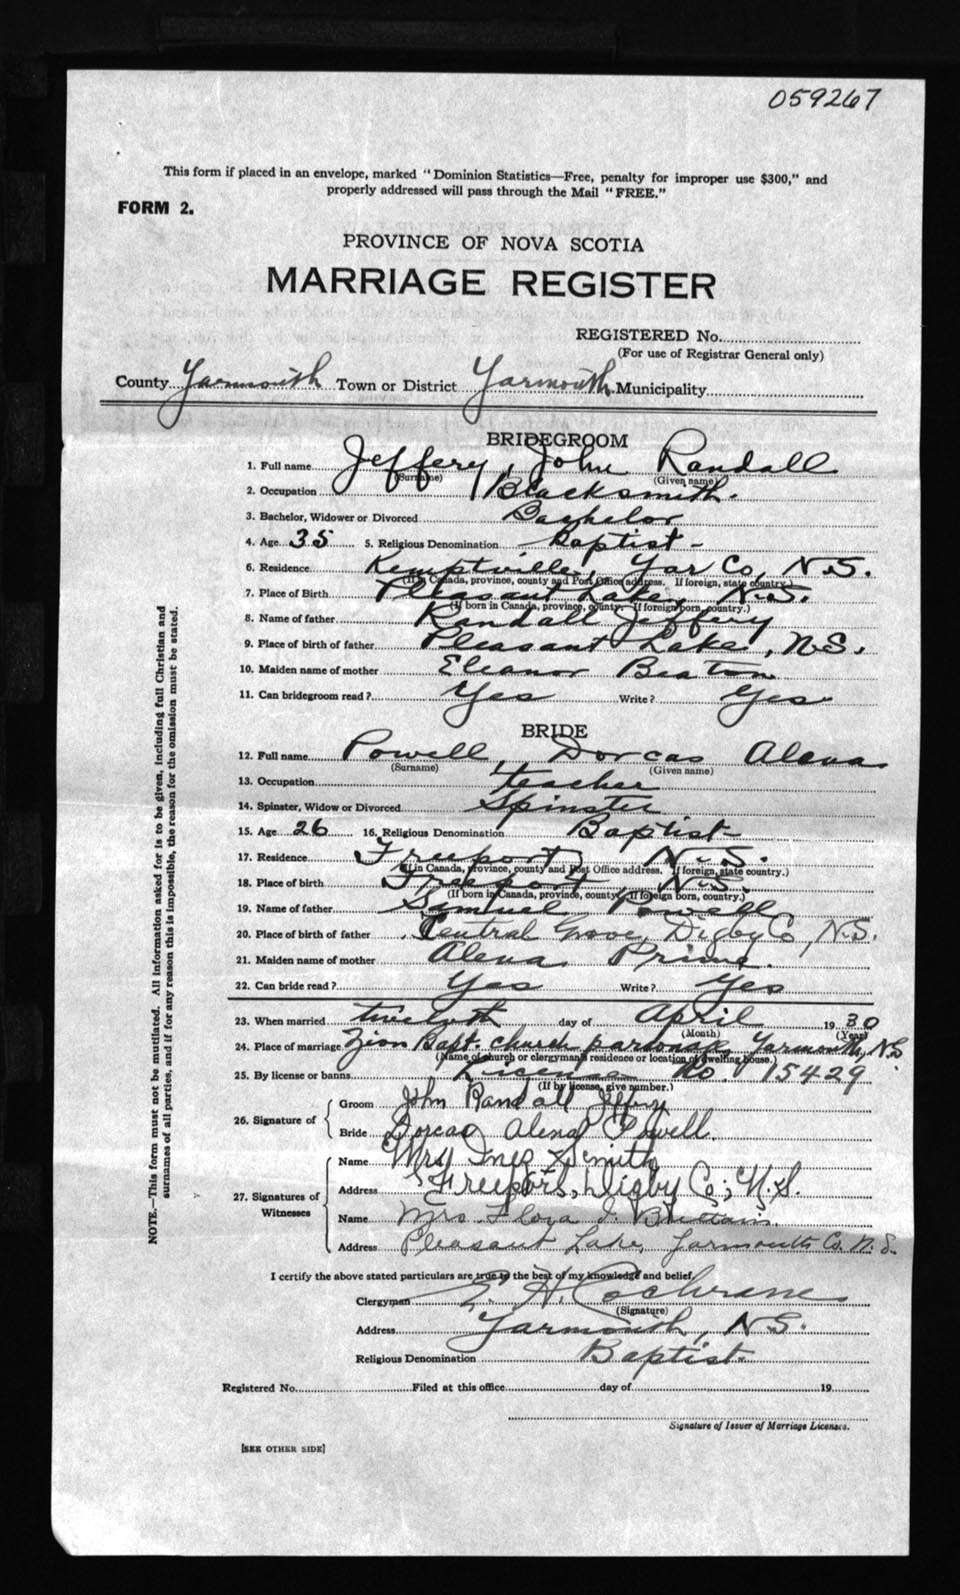 059267
This form if placed in an envelope, marked "Dominion Statistics—Free, penalty for improper use $300," and
properly addressed will pass through the Mail "FREE."
FORM 2.
PROVINCE OF NOVA SCOTIA
MARRIAGE REGISTER
REGISTERED No.
(For use of Registrar General only)
County Yarmouth Town or District Yarmouth Municipality
BRIDEGROOM
1. Full name Jeffery, John Randall
(Surname) (Given name)
2. Occupation Blacksmith.
3. Bachelor, Widower or Divorced Bachelor
4. Age 35 5. Religious Denomination Baptist -
6. Residence Kemptville, Yar Co, N.S.
(If in Canada, province, county and Post Office address. If foreign, state country.)
7. Place of Birth Pleasant Lake, N.S.
(If born in Canada, province, county. If foreign born, country.)
8. Name of father Randall Jeffery
9. Place of birth of father Pleasant Lake, N.S.
10. Maiden name of mother Eleanor Beaton
11. Can bridegroom read? Yes Write? Yes
BRIDE
12. Full name Powell, Dorcas Alena
(Surname) (Given name)
13. Occupation teacher
14. Spinster, Widow or Divorced Spinster
15. Age 26 16. Religious Denomination Baptist
17. Residence Freeport, N.S.
(If in Canada, province, county and Post Office address. If foreign, state country.)
18. Place of birth Freeport, N.S.
(If born in Canada, province, county. If foreign born, country.)
19. Name of father Samuel Powell
20. Place of birth of father Central Grove, Digby Co, N.S.
21. Maiden name of mother Alena Prime.
22. Can bride read? Yes Write? Yes
23. When married twelveth day of April 1930
(Month) (Year)
24. Place of marriage Zion Bapt. church parsonage Yarmouth, N.S.
(Name of church or clergyman's residence or location of dwelling house.)
25. By license or banns License No. 15429
(If by license, give number.)
26. Signature of
Groom John Randall Jeffery
Bride Dorcas Alena Powell.
27. Signatures of Witnesses
Name Mrs Inez Smith
Address Freeport, Digby Co., N.S.
Name Mrs. Flora J. Brittain.
Address Pleasant Lake, Yarmouth Co. N.S.
I certify the above stated particulars are true to the best of my knowledge and belief.
Clergyman E. H. Cochrane
(Signature)
Address Yarmouth, N.S.
Religious Denomination Baptist
Registered No. Filed at this office day of 19
Signature of Issuer of Marriage Licenses.
[SEE OTHER SIDE]
NOTE.—This form must not be mutilated. All information asked for is to be given, including full Christian and
surnames of all parties, and if for any reason this is impossible, the reason for the omission must be stated.